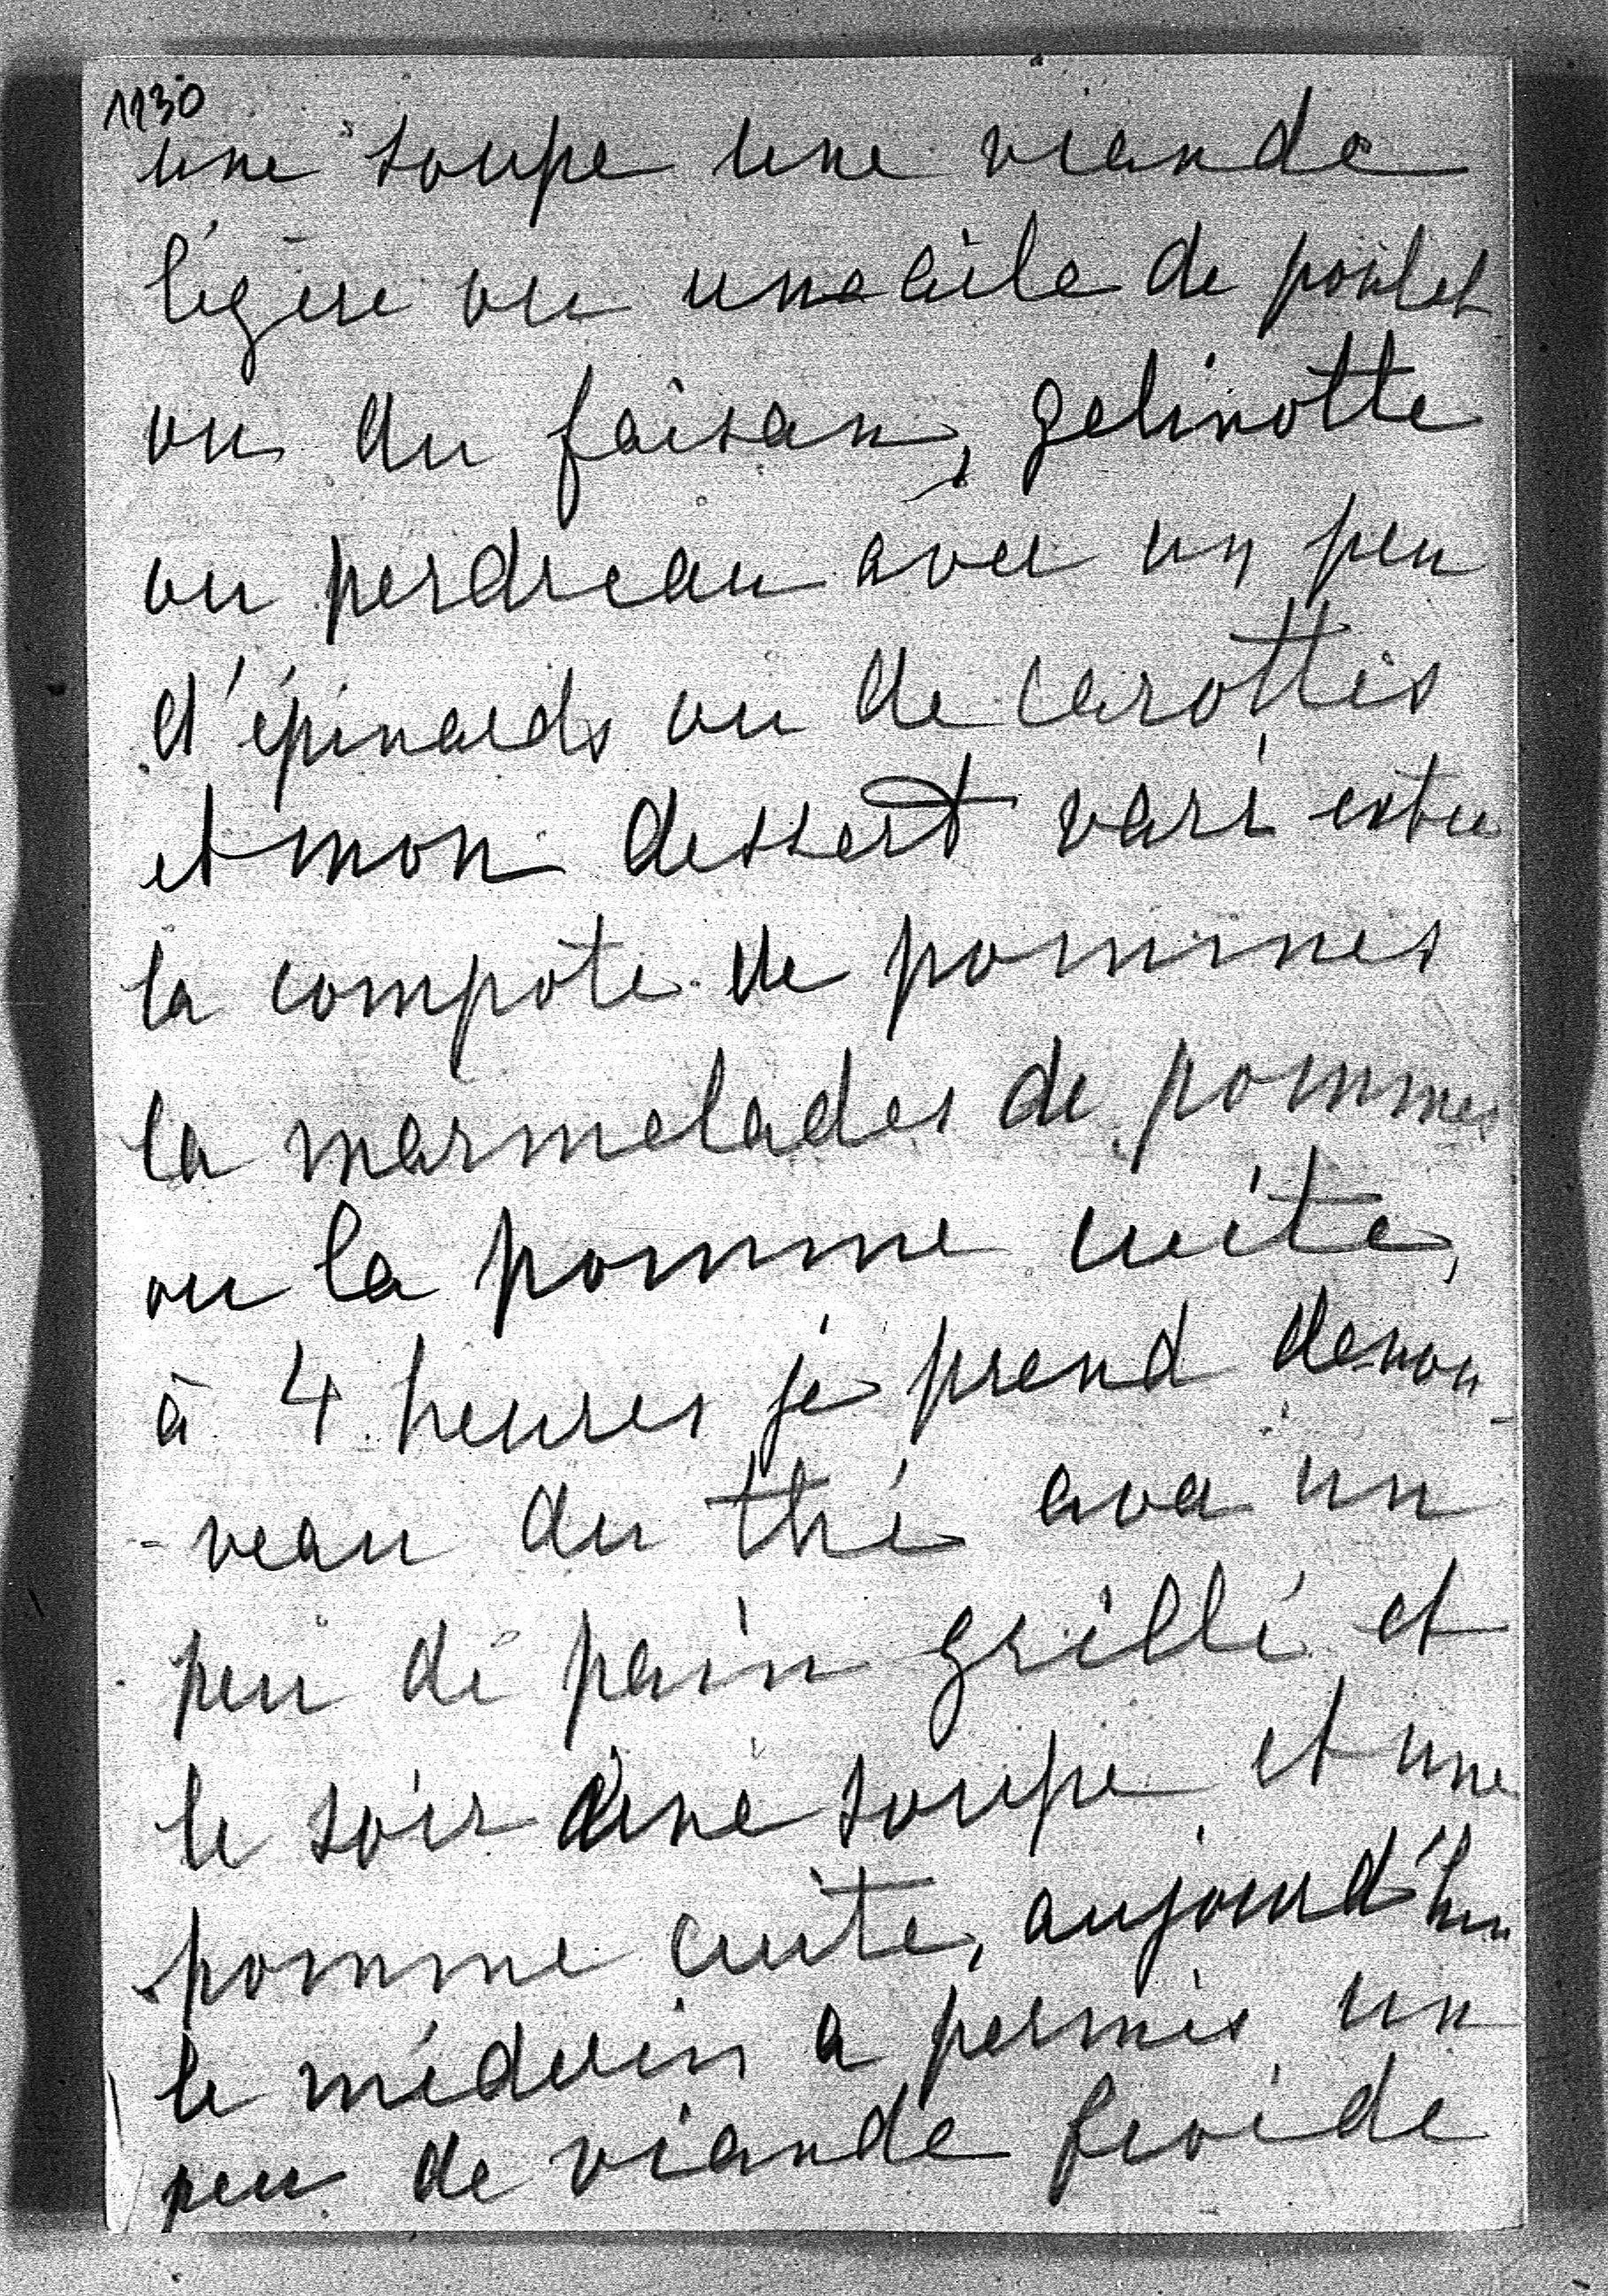 1130
une soupe une viande
légère ou une aile de poulet
ou du faisan, gelinotte
ou perdreau avec un peu
d'épinards ou de carottes
et mon dessert vari entre
la compote de pommes
la marmelades de pommes
ou la pomme cuite,
à 4 heures je prend denou-
-veau du thé avec un
peu de pain grillé et
le soir une soupe et une
pomme cuite, aujourd'hui
le médecin a permis un
peu de viande froide